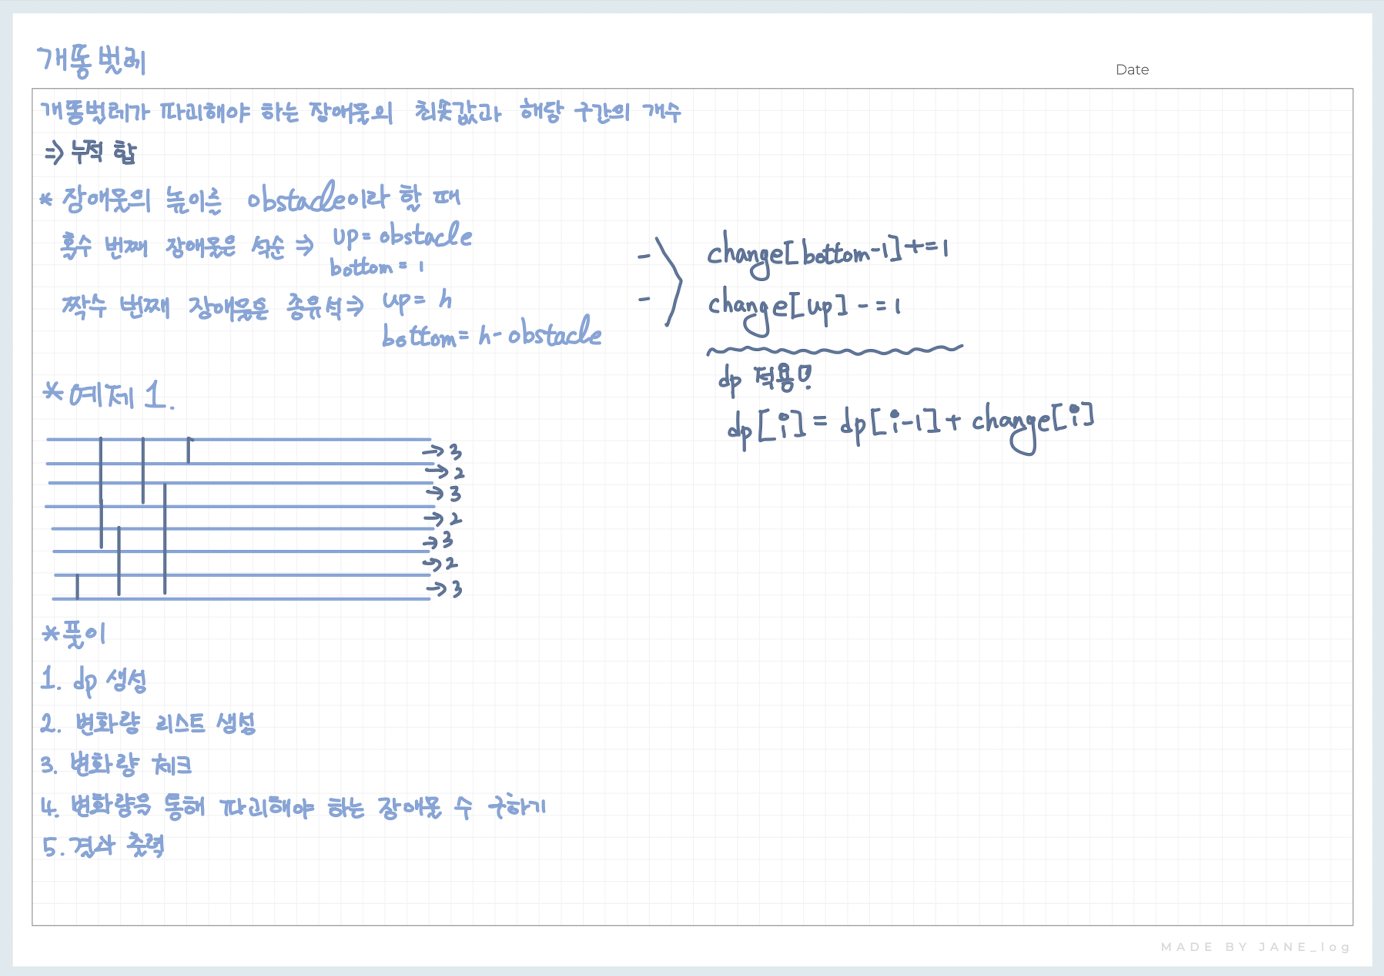 개똥벌레
Date
개똥벌레가 파괴해야 하는 장애물의 최솟값과 해당 구간의 개수
⇒ 누적 합
* 장애물의 높이를 obstacle이라 할 때
홀수 번째 장애물은 석순 ⇒ up = obstacle
bottom = 1
짝수 번째 장애물은 종유석 ⇒ up = h
bottom = h - obstacle
change[bottom-1] += 1
change[up] -= 1
dp 적용!
dp[i] = dp[i-1] + change[i]
* 예제 1.
→ 3
→ 2
→ 3
→ 2
→ 3
→ 2
→ 3
* 풀이
1. dp 생성
2. 변화량 리스트 생성
3. 변화량 체크
4. 변화량을 통해 파괴해야 하는 장애물 수 구하기
5. 결과 출력
MADE BY JANE_log